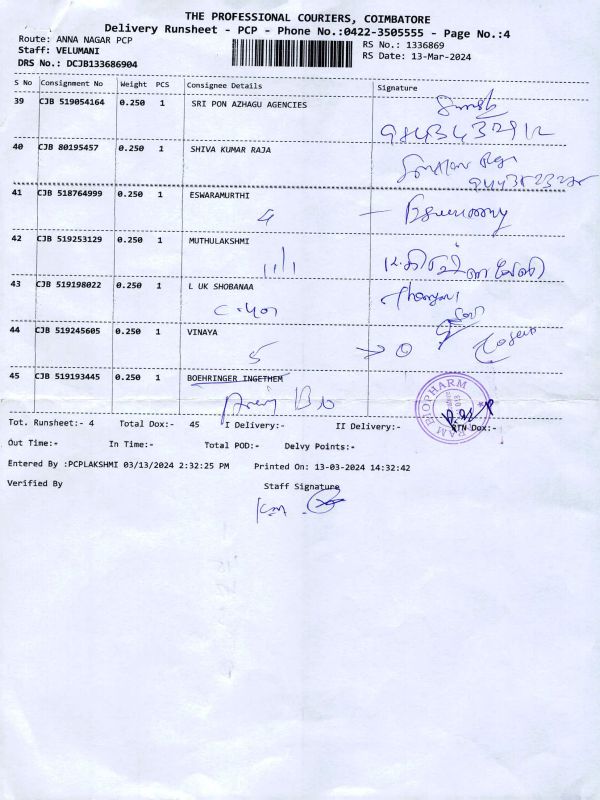 THE PROFESSIONAL COURIERS, COIMBATORE
Delivery Runsheet - PCP - Phone No.:0422-3505555 - Page No.:4
Route: ANNA NAGAR PCP
RS No.: 1336869
Staff: VELUMANI
RS Date: 13-Mar-2024
DRS No.: DCJB133686904
S No Consignment No Weight PCS Consignee Details Signature
39 CJB 519054164 0.250 1 SRI PON AZHAGU AGENCIES
40 CJB 80195457 0.250 1 SHIVA KUMAR RAJA
41 CJB 518764999 0.250 1 ESWARAMURTHI
42 CJB 519253129 0.250 1 MUTHULAKSHMI
43 CJB 519198022 0.250 1 L UK SHOBANAA
44 CJB 519245605 0.250 1 VINAYA
5
45 CJB 519193445 0.250 1 BOEHRINGER INGETHEM
RAM BIOPHARM
Tot. Runsheet:- 4 Total Dox:- 45 I Delivery:- II Delivery:- RTN Dox:-
Out Time:- In Time:- Total POD:- Delvy Points:-
Entered By :PCPLAKSHMI 03/13/2024 2:32:25 PM Printed On: 13-03-2024 14:32:42
Verified By Staff Signature